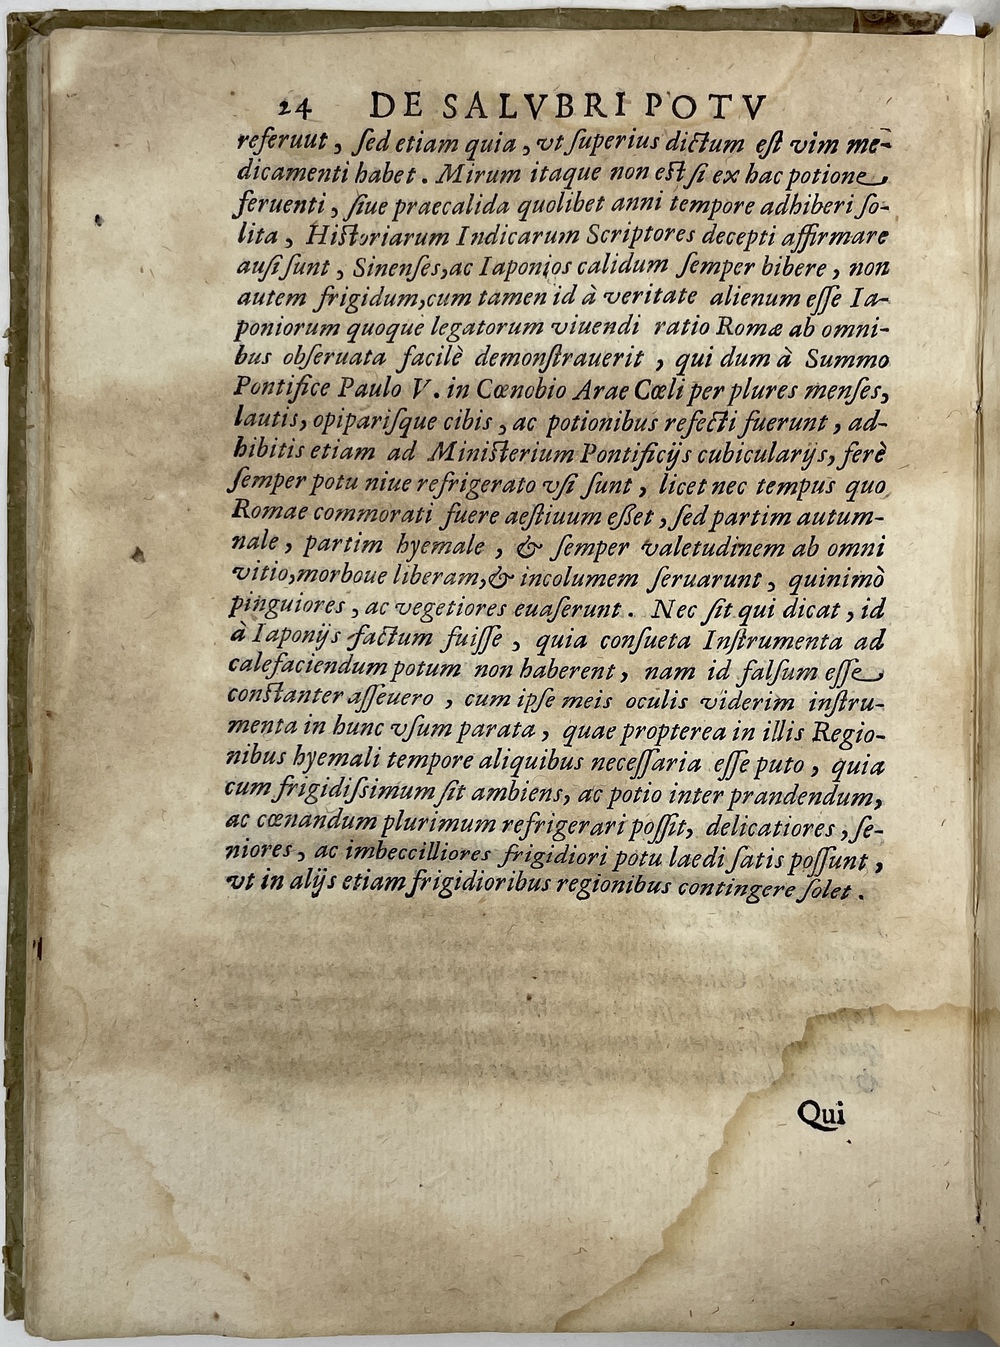 24 DE SALVBRI POTV
referuut, ſed etiam quia, vt ſuperius dictum eſt vim mē-
dicamenti habet. Mirum itaque non eſt ſi ex hac potione
feruenti, ſiue praecalida quolibet anni tempore adhiberi ſo-
lita, Hiſtoriarum Indicarum Scriptores decepti affirmare
auſi ſunt, Sinenſes, ac Iaponios calidum ſemper bibere, non
autem frigidum, cum tamen id à veritate alienum eſſe Ia-
poniorum quoque legatorum viuendi ratio Romæ ab omni-
bus obſeruata facilè demonſtrauerit, qui dum à Summo
Pontifice Paulo V. in Cœnobio Arae Cœli per plures menſes,
lautis, opipariſque cibis, ac potionibus refecti fuerunt, ad-
hibitis etiam ad Miniſterium Pontificijs cubicularijs, ferè
ſemper potu niue refrigerato vſi ſunt, licet nec tempus quo
Romae commorati fuere aeſtiuum eßet, ſed partim autum-
nale, partim hyemale, & ſemper valetudinem ab omni
vitio, morboue liberam, & incolumem ſeruarunt, quinimò
pinguiores, ac vegetiores euaſerunt. Nec ſit qui dicat, id
à Iaponijs factum fuiſſe, quia conſueta Inſtrumenta ad
calefaciendum potum non haberent, nam id falſum eſſe
conſtanter aſſeuero, cum ipſe meis oculis viderim inſtru-
menta in hunc vſum parata, quae propterea in illis Regio-
nibus hyemali tempore aliquibus neceſſaria eſſe puto, quia
cum frigidiſsimum ſit ambiens, ac potio inter prandendum,
ac cœnandum plurimum refrigerari poſſit, delicatiores, ſe-
niores, ac imbeccilliores frigidiori potu laedi ſatis poſſunt,
vt in alijs etiam frigidioribus regionibus contingere ſolet.
Qui